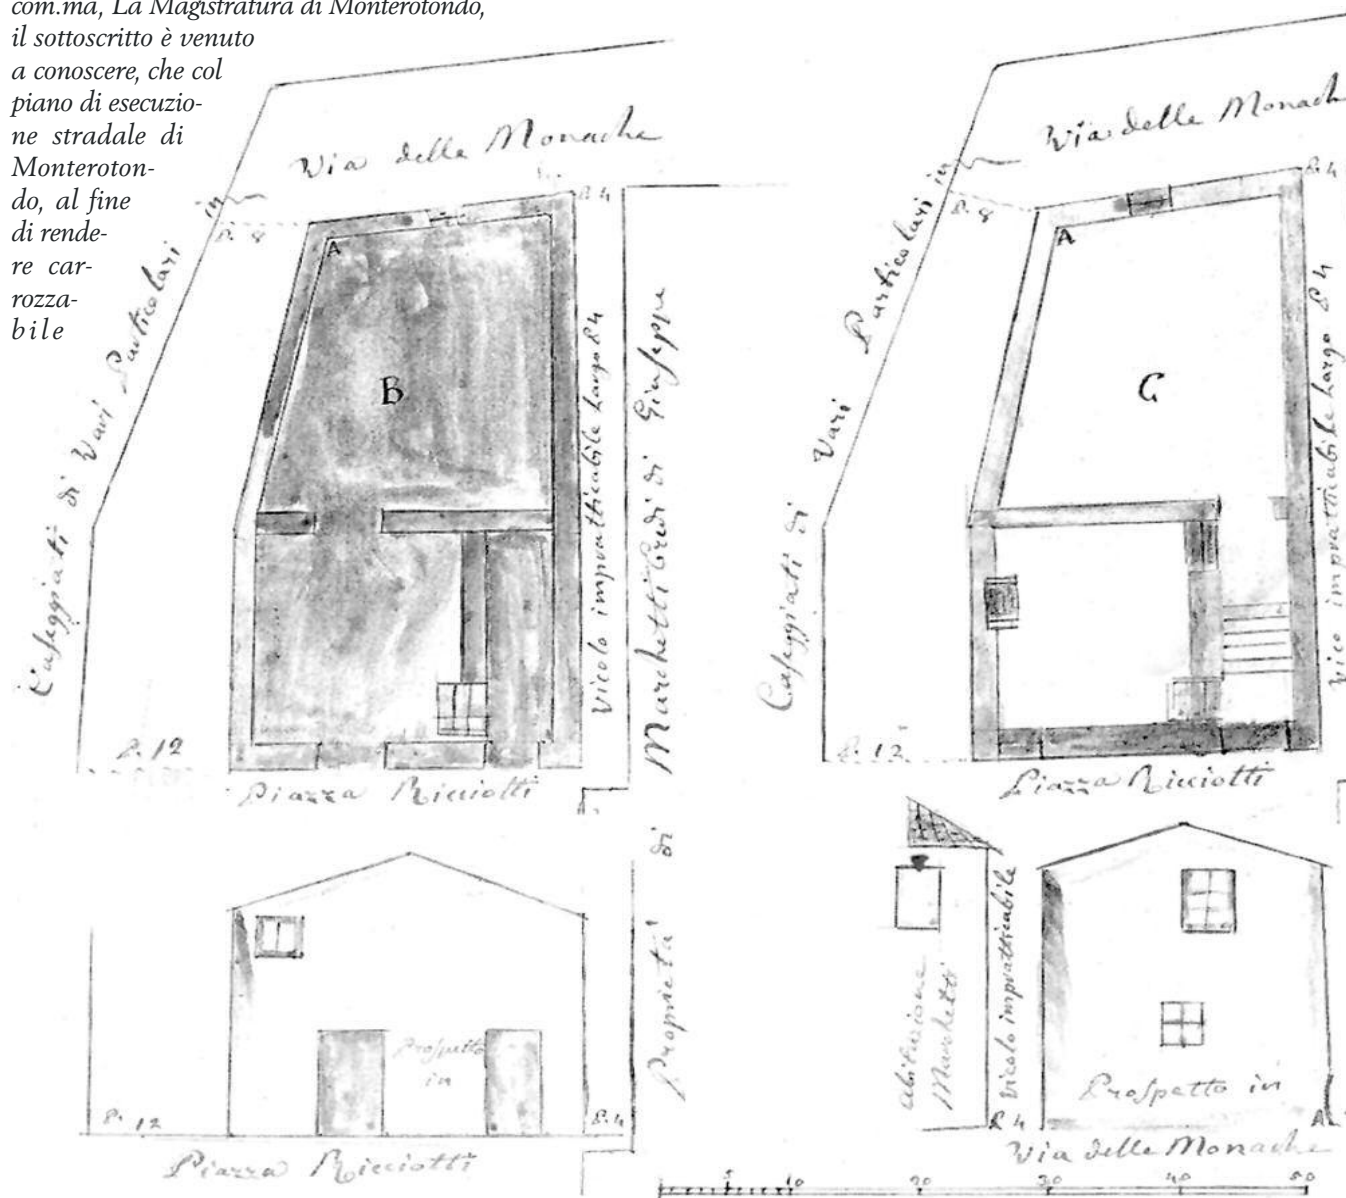 com.ma, La Magistratura di Monterotondo,
il sottoscritto è venuto
a conoscere, che col
piano di esecuzio-
ne stradale di
Monteroton-
do, al fine
di rende-
re car-
rozza-
bile
Via delle Monache
P. 4
in
P. 8
A
Caseggiati di Vari Particolari
B
Vicolo impratticabile Largo P. 4
Marchetti Eredi di Giuseppe
P. 12
Piazza Ricciotti
Proprietà di
Prospetto
in
P. 12
P. 4
Piazza Ricciotti
Via delle Monach
P. 4
P. 8
A
Caseggiati di Vari Particolari in
C
Vico impratticabile Largo P 4
P. 12
Piazza Ricciotti
abitazione
Marchetti
Vicolo impratticabile
P. 4
Prospetto in
A
Via delle Monache
5 10 20 30 40 50